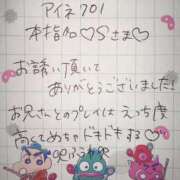 アイネ701
本指名♡Sさま♡
お誘い頂いて
ありがとうございました!
お兄さんとのプレイはえっち度
高くてめちゃドキドキする♡